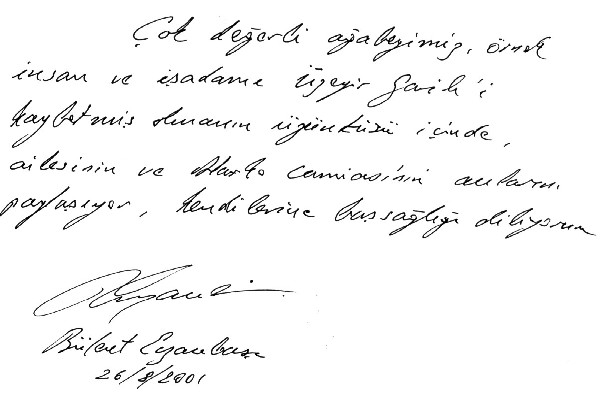 Çok değerli ağabeyimiz, örnek
insan ve işadamı Üzeyir Garih'i
kaybetmiş olmanın üzüntüsü içinde,
ailesinin ve Alarko Camiası'nın acılarını
paylaşıyor, kendilerine başsağlığı diliyorum
Bülent Eczacıbaşı
26/8/2001